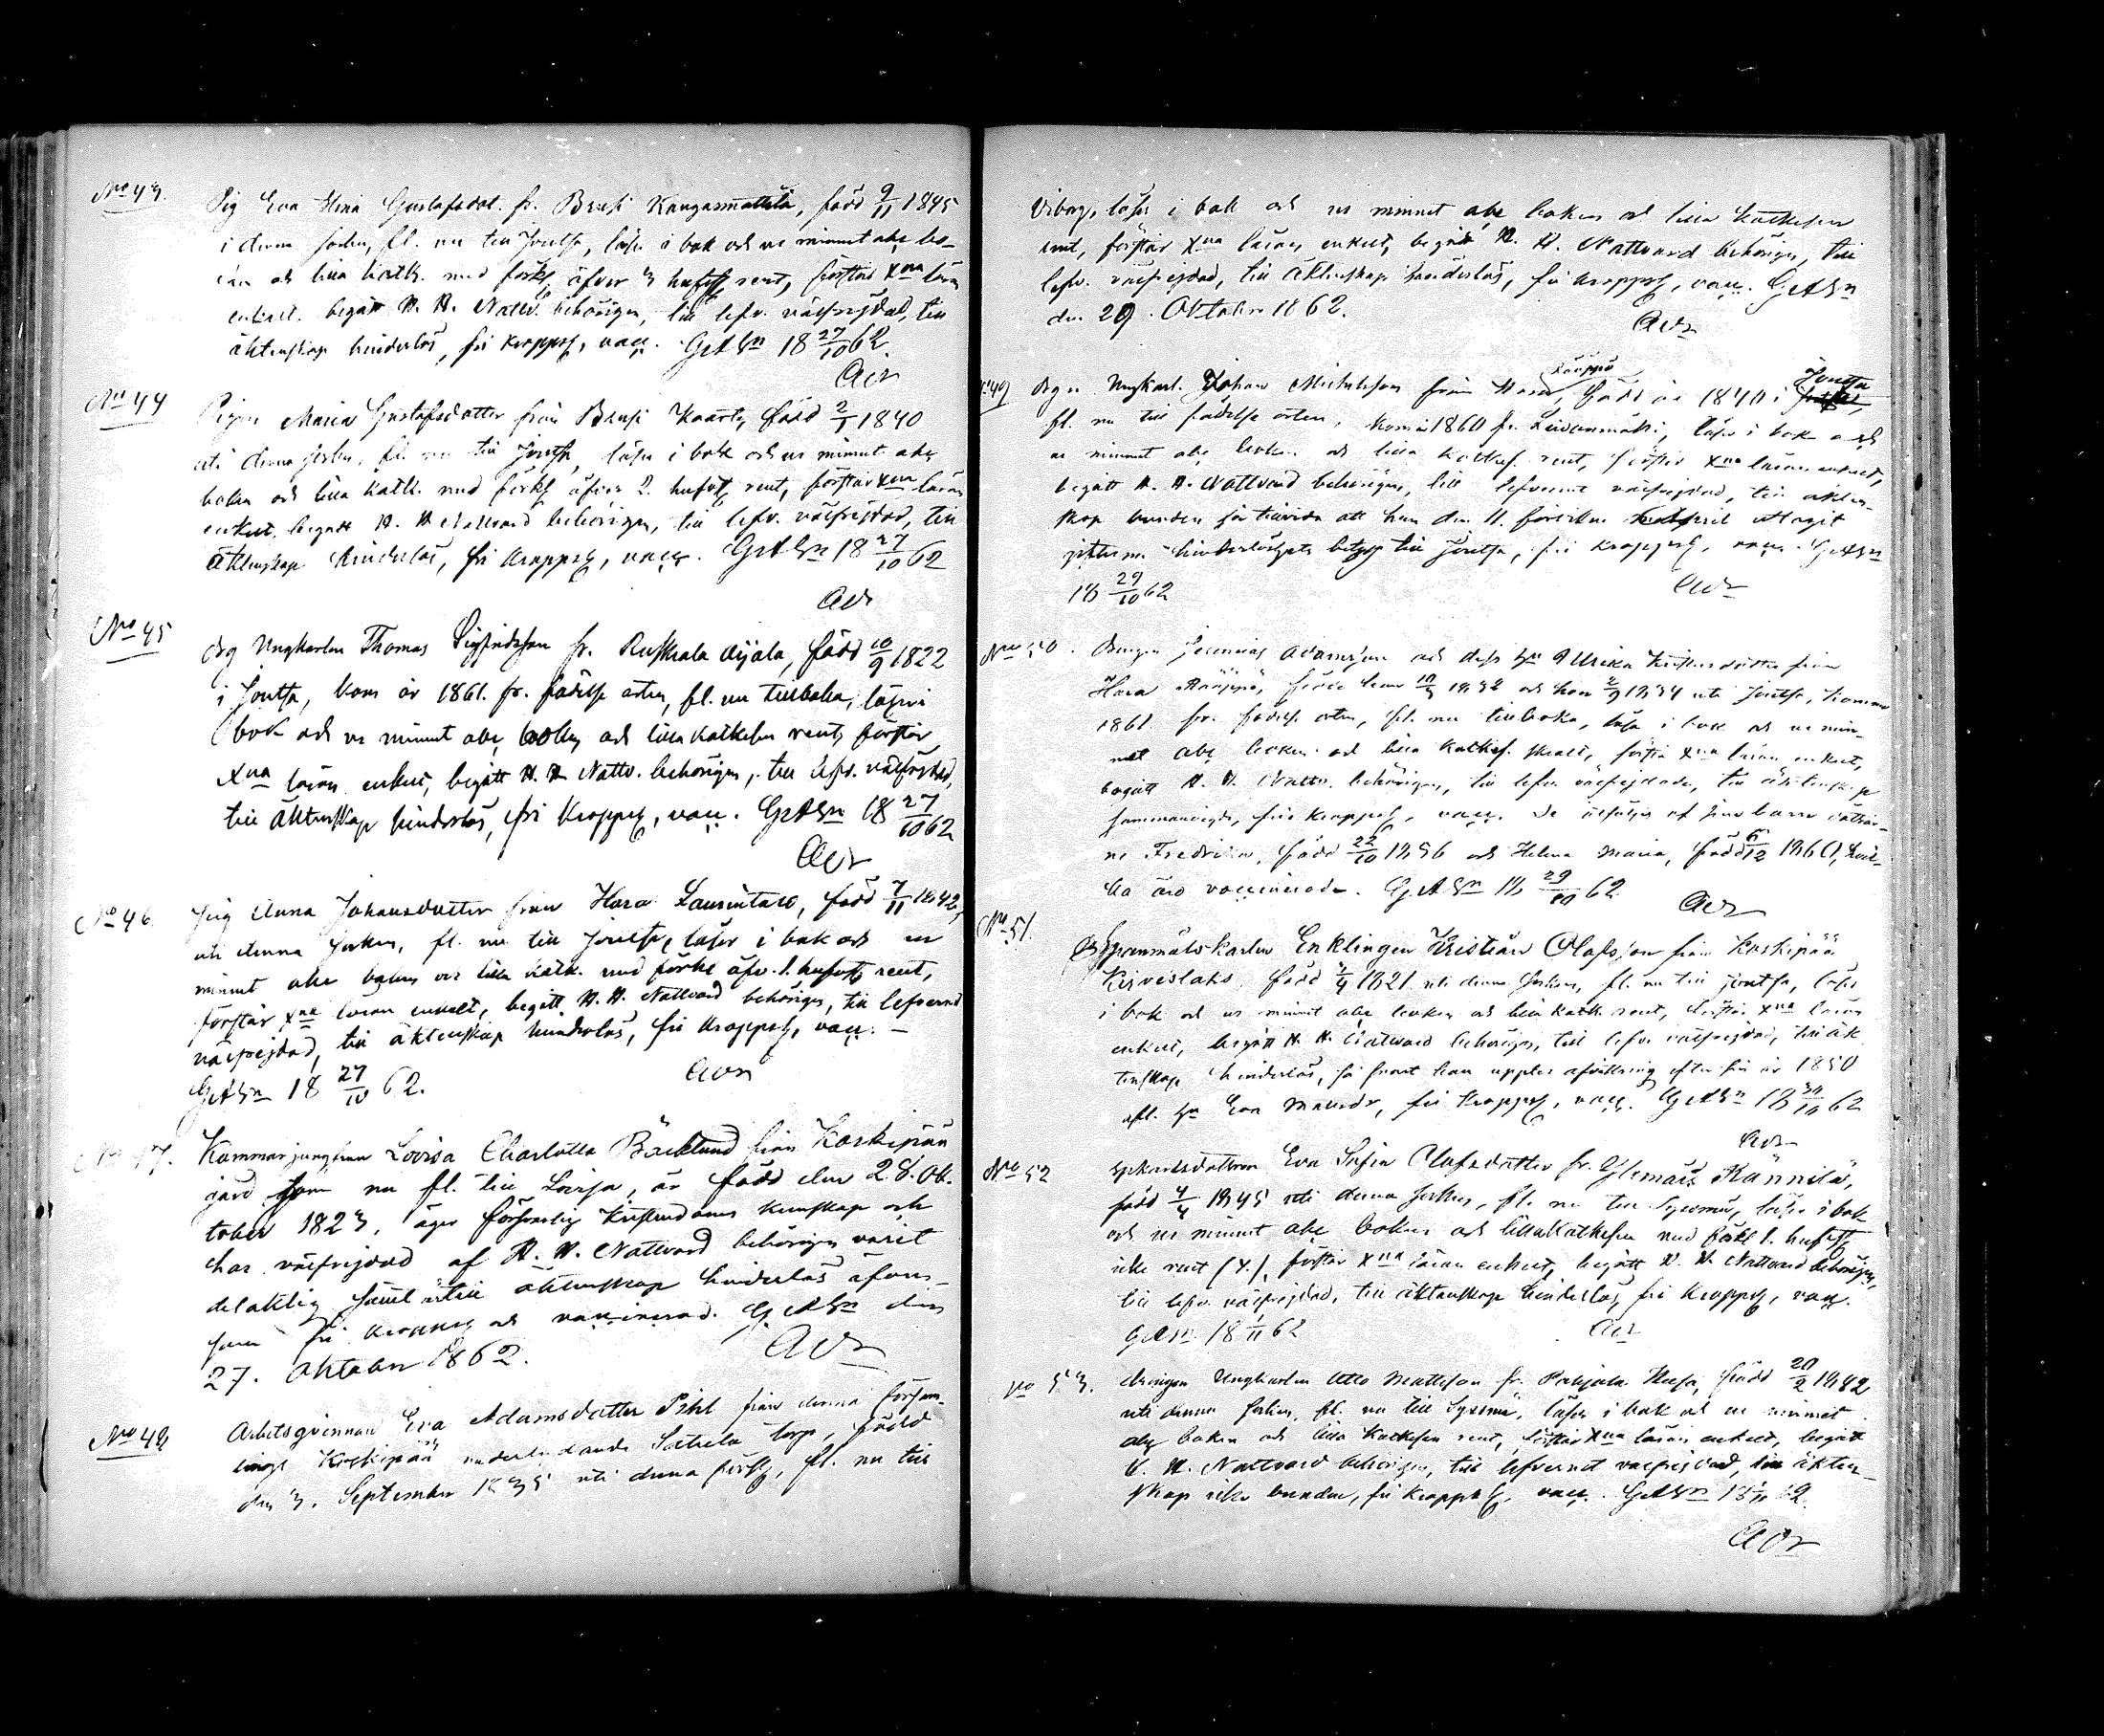 No 43. Pig Eva Stina Gustafsdot. fr. Brusi Kangasmattila, född 9/11 1845
i denna socken, fl. nu till Joutsa, läser i bok och ur minnet abc bo-
ken och lilla katk. med förkl. öfver 3 hufst. rent, förstår Xna läran
enkelt, begått H. H. Nattv. behörigen, till lefv. välfrejdad, till
äktenskap hinderlös, fri kropps, vacc. GASn 18 27/10 62.
No 44 Pigan Maria Gustafsdotter från Brusi Kaarto, född 2/1 1840
uti denna socken, fl. nu till Joutsa, läser i bok och ur minnet abc
boken och lilla katk. med förkl. öfver 2. hufvst. rent, förstår Xna läran
enkelt, begått H. H. Nattvard behörigen, till lefv. välfrejdad, till
äktenskap hinderlös, fri kropps, vacc. GASn 18 27/10 62
No 45 Drg Ungkarlen Thomas Sigfridsson fr. Ruskiala Äijälä, född 10/9 1822
i Joutsa, kom år 1861. fr. födelse orten, fl. nu tillbaka, läser i
bok och ur minnet abc boken och lilla katkesen rent, förstår
Xna läran enkelt, begått H. H. Nattv. behörigen, till lefv. välfrejdad,
till äktenskap hinderlös, fri kropps, vacc. GASn 18 27/10 62
No 46. Pig Anna Johansdotter från Hara, född 7/11 1842,
uti denna socken, fl. nu till Joutsa, läser i bok och ur
minnet abc boken och lilla katk. med förkl. öfv. 1. hufvst. rent,
förstår Xna läran enkelt, begått H. H. Nattvard behörigen, till lefvernet
välfrejdad, till äktenskap hinderlös, fri kropps, vacc. —
GASn 18 27/10 62.
No 47. Kammarjungfrun Lovisa Charlotta Bäcklund från Koskipää
gård som nu fl. till Lovisa, är född den 28. Ok-
tober 1823, äger försvarlig kristendoms kunskap och
har välfrejdad af H. H. Nattvard behörigen varit
delaktig samt är till äktenskap hinderlös äfven-
som fri kropps och vaccinerad. GASn den
27. Oktober 1862.
No 48 Arbetsqvinnan Eva Adamsdotter Pihl från denna försam-
lings Koskipää underlydande torp, född
den 3. September 1835 uti denna förs., fl. nu till
Viborg, läser i bok och ur minnet abc boken och lilla katkesen
rent, förstår Xna läran enkelt, begått H. H. Nattvard behörigen, till
lefv. välfrejdad, till äktenskap hinderlös, fri kropps, vacc. GASn
den 29. Oktober 1862.
No 49 Drgn Ungkarl. Johan Michelsson från Hara Rääppä, född år 1840 i Joutsa,
fl. nu till födelse orten, kom år 1860 fr. Leivonmäki, läser i bok och
ur minnet abc boken och lilla katkes. rent, förstår Xna läran enkelt,
begått H. H. Nattvard behörigen, till lefvernet välfrejdad, till äkten-
skap bunden så tillvida att han den 11. April uttagit
hinderlöshets betyg till Joutsa, fri kropps, vacc. GASn
18 29/10 62
No 50. Drengen Adamsson och dess hu Ulrika Kristersdotter från
Hara Rääppä, född han 10/ 1832 och hon 2/9 1834 uti Joutsa, komna
1861 fr. födelse orten, fl. nu tillbaka, läsa i bok och ur min-
net abc boken och lilla katkes., förstå Xna läran enkelt,
begått H. H. Nattv. behörigen, till lefv. välfrejdade, till äktenskap
sammanvigde, fria kropps, vacc. De åtföljas af sina barn döttrar-
ne Fredrika, född 22/10 1856 och Helena Maria, född 6/12 1860, hvil-
ka äro vaccinerade. GASn 18 29/10 62
No 51. Spanmålskarlen Enklingen Kristian Olafsson från Koskipää
Kirveslaks, född /4 1821 uti denna socken, fl. nu till Joutsa, läser
i bok och ur minnet abc boken och lilla katk. rent, förstår Xna läran
enkelt, begått H. H. Nattvard behörigen, till lefv. välfrejdad, till äk-
tenskap hinderlös, så snart han upptes afvittring efter sin år 1850
afl. hu Eva, fri kropps, vacc. GASn 18 30/10 62
No 52 Spkarlsdottren Eva Sofia Olafsdotter fr. Ylemäis Kännilä,
född 4/4 1845 uti denna socken, fl. nu till Sysmä, läser i bok
och ur minnet abc boken och lilla katkesen med förkl. 1. hufst.
icke rent (X), förstår Xna läran enkelt, begått H. H. Nattvard behörigen,
till lefv. välfrejdad, till äktenskap hinderlös, fri kropps, vacc.
GASn 18 1/11 62
No 53. Drengen Ungkarlen Otto Mattsson fr. Pohjola, född 20/2 1842
uti denna socken, fl. nu till Sysmä, läser i bok och ur minnet
abc boken och lilla katkesen rent, förstår Xna läran enkelt, begått
H. H. Nattvard behörigen, till lefvernet välfrejdad, till äkten-
skap icke bunden, fri kropps, vacc. GASn 18 /11 62.